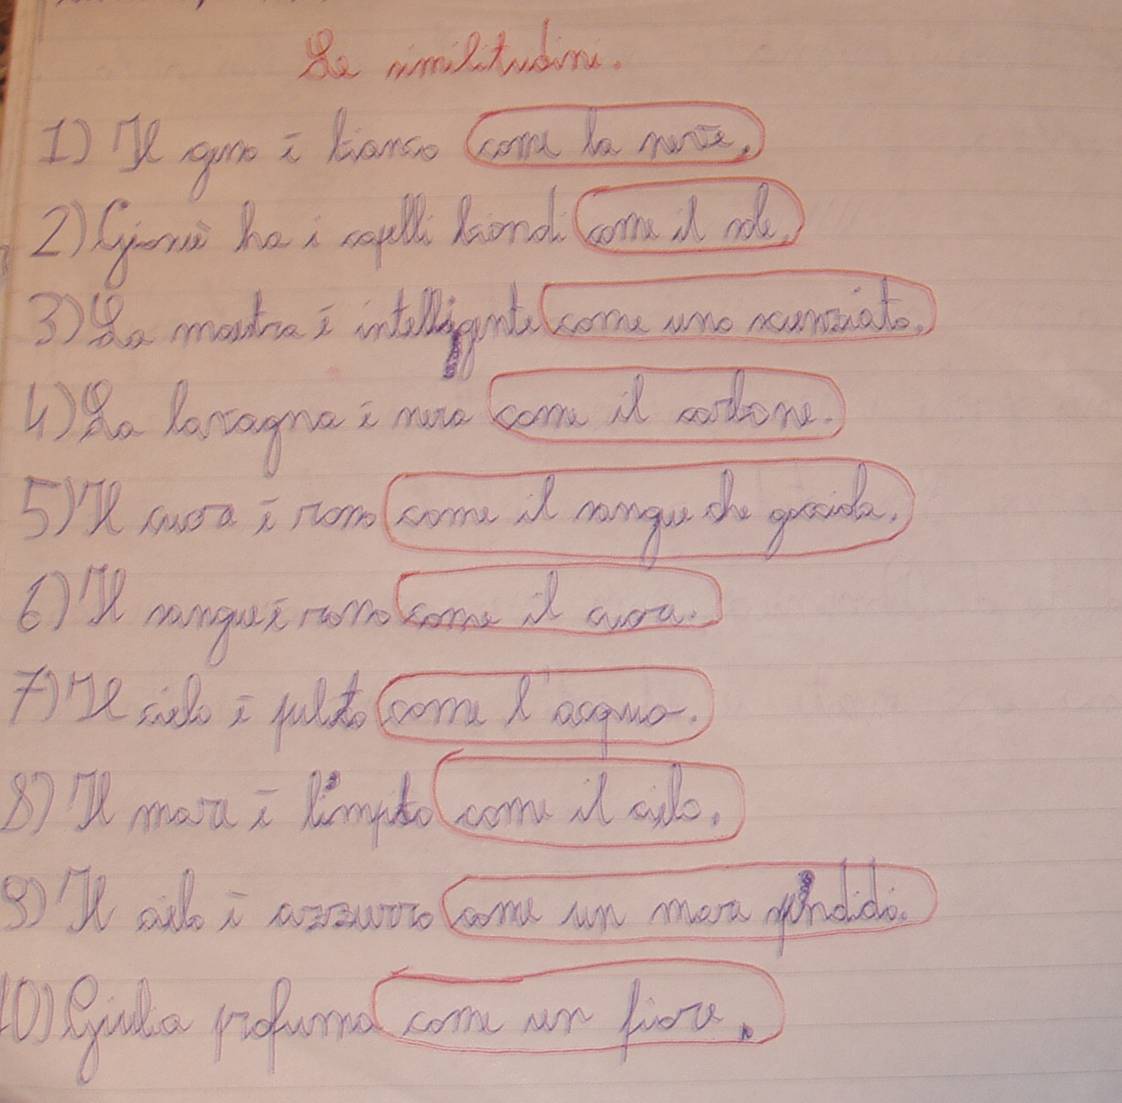 Le similitudini.
1) Il gesso è bianco come la neve.
2) Giosuè ha i capelli biondi come il sole.
3) La maestra è intelligente come uno scienziato.
4) La lavagna è nera come il carbone.
5) Il cuore è rosso come il sangue che gocciola.
6) Il sangue è rosso come il cuore.
7) Il cielo è pulito come l'acqua.
8) Il mare è limpido come il cielo.
9) Il cielo è azzurro come un mare splendido.
10) Giulia profuma come un fiore.